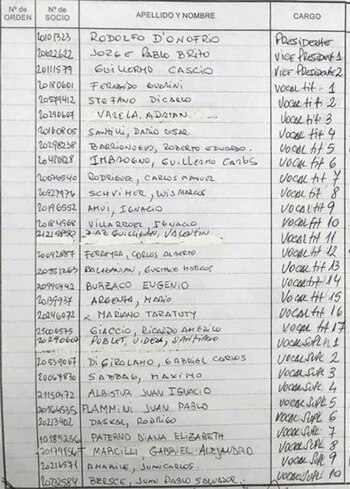 Nº de ORDEN Nº de SOCIO APELLIDO Y NOMBRE CARGO
20101323 RODOLFO D'ONOFRIO PRESIDENTE
20622622 JORGE PABLO BRITO VICE PRESIDENTE 1
20111579 GUILLERMO CASCIO VICE PRESIDENTE 2
20180601 FERNANDO VOCAL tit. 1
20579412 STEFANO DICARLO VOCAL tit 2
20290607 VARELA, ADRIAN VOCAL tit 3
20160805 SANTILLI, DARIO CESAR VOCAL tit 4
20298238 BARRIONUEVO, ROBERTO EDUARDO. VOCAL tit 5
20480828 IMBROGNO, GUILLERMO CARLOS VOCAL tit 6
20076540 RODRIGUEZ, CARLOS MANUEL VOCAL tit 7
20927976 WISMARCOS VOCAL tit 8
20196552 AHUI, IGNACIO VOCAL tit 9
20184968 VILLARROEL IGNACIO VOCAL tit 10
DIAZ VALENTIN VOCAL tit 11
20092887 FERREYRA, CARLOS ALBERTO VOCAL tit 12
20351263 GUSTAVO VOCAL tit 13
20990442 BURZACO EUGENIO VOCAL tit 14
ARGENTA, MARIO VOCAL tit 15
20246072 MARIANO TARATUTY VOCAL tit 16
25004575 GIACCIO, RICARDO AMERICO VOCAL tit 17
20290602 POBLET, VIDELA, SANTIAGO VOCAL SUPL 1
20539067 DI GIROLAMO, GABRIEL CARLOS VOCAL SUPL 2
20064830 SABBAG, MAXIMO VOCAL SUPL 3
21150472 ALBISTUR JUAN IGNACIO VOCAL SUPL 4
20164535 FLAMMINI JUAN PABLO VOCAL SUPL 5
20213402 DASKAL, RODRIGO VOCAL SUPL 6
10189256 PATERNO DIANA ELIZABETH VOCAL SUPL 7
MARCILLI GABRIEL ALEJANDRO VOCAL SUPL 8
20216571 AMABILE, JUAN CARLOS VOCAL SUPL 9
20192584 BERSCE, JUAN PABLO SALVADOR. VOCAL SUPL 10